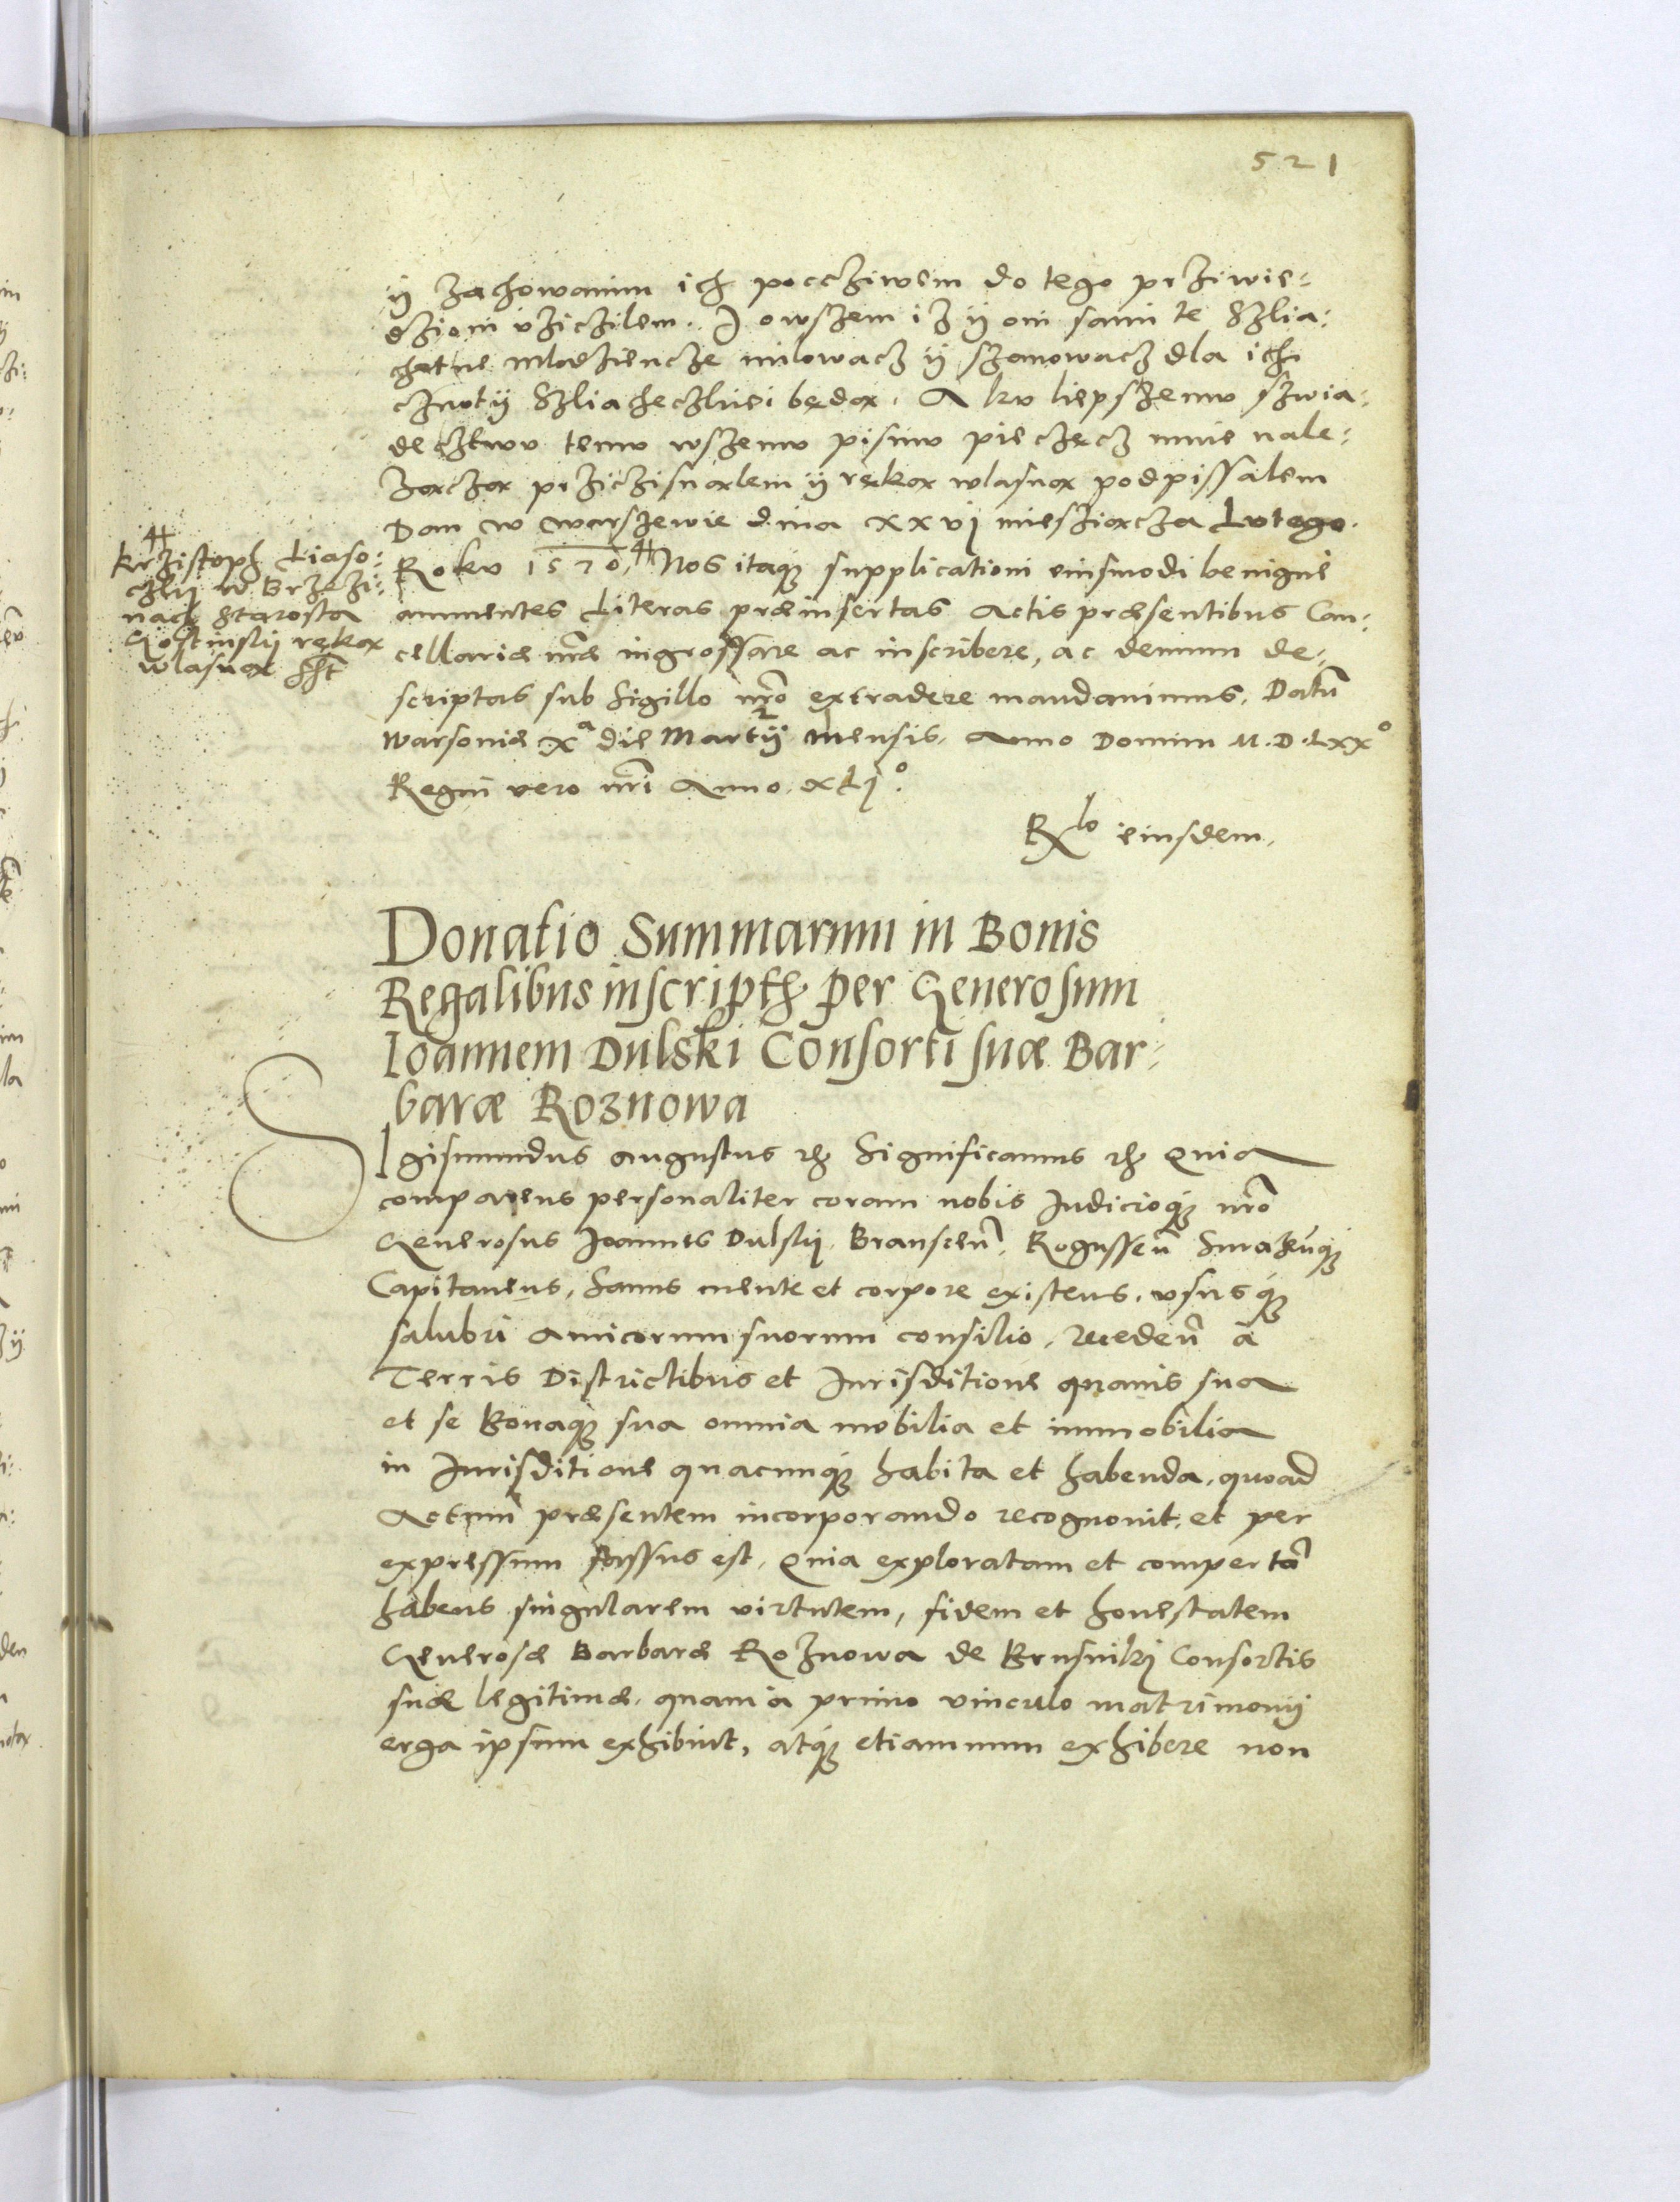 521
ÿ zachowanim ich pocczizwem do tego prziwie⸗
dzioni vziczilem. J owszem iz ÿ oni sami te Szlia⸗
chetne mlodziencze milowacz ÿ szanowacz dla ich
cznotÿ Szliacheczkiei będą. A ku liepszemu szwia⸗
decztwu temu wszemu pismu pieczęcz mnie nale⸗
żączą prziczisnąlem ÿ ręką wlasną podpissalem
Dan w Warszewie dnia xxvj miesziącza Lutego.
Roku 1570. # Nos itaq; supplicationi eiusmodi benignè
annuentes Literas præinsertas Actis præsentibus Can⸗
cellariæ nr̃æ ingrossare ac inscribere, ac demum de⸗
scriptas sub Sigillo nr̃o extradere mandauimus. Datũ
Warsouiæ xª die Martÿ mensis. Anno Domini M.D.Lxxº
Regni vero nr̃i Anno. xLjº.
# Krzistoph Liaso⸗
czkj w Brzezi⸗
nach Starosta
Gostinskj ręką
wlasną sst
Rlo eiusdem.
Donatio Summarum in Bonis
Regalibus inscript. per Generosum
Ioannem Dulski Consorti suæ Bar⸗
baræ Roznowa
SIgismundus Augustus etc. Significamus etc. Quia
comparens personaliter coram nobis Iudicioq; nr̃o
Generosus Joannes Dulskj Branscen̄. Rogussen̄ Surazen̄q;
Capitaneus, Sanus mente et corpore existens, vsusq;
salubri amicorum suorum consilio, Receden̄ à
Terris Districtibus et Jurisditione quauis sua
et se Bonaq; sua omnia mobilia et immobilia
in Jurisditione quacunq; habita et habenda, quoad
Actum præsentem incorporando recognouit. et per
expressum fassus est. Quia exploratam et compertã
habens singularem virtutem, fidem et honestatem
Generosæ Barbaræ Roznowa de Brusnikj Consortis
suæ legitimæ, quam à primo vinculo matrimonij
erga ipsum exhibuit, atq; etiamnum exhibere non